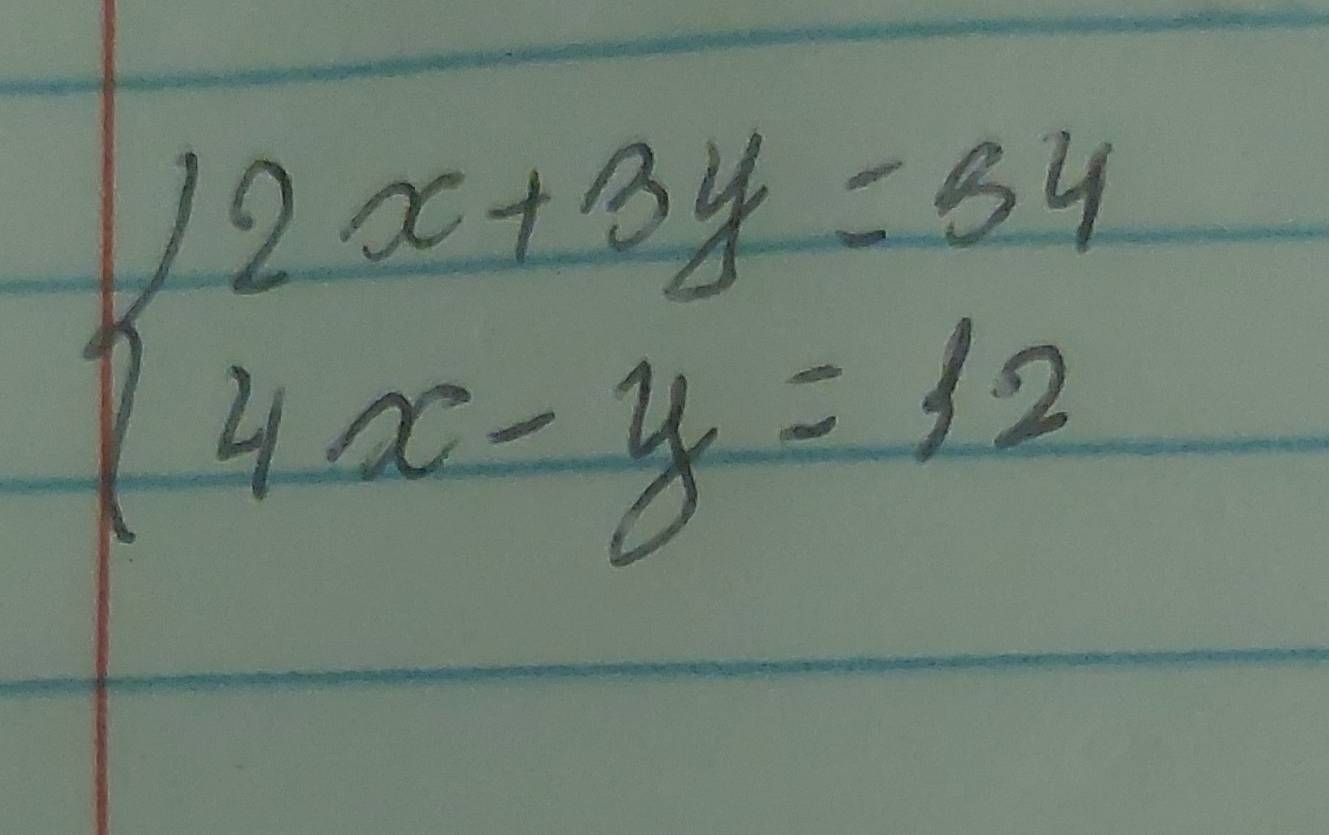 2x+3y=54
4x-y=12